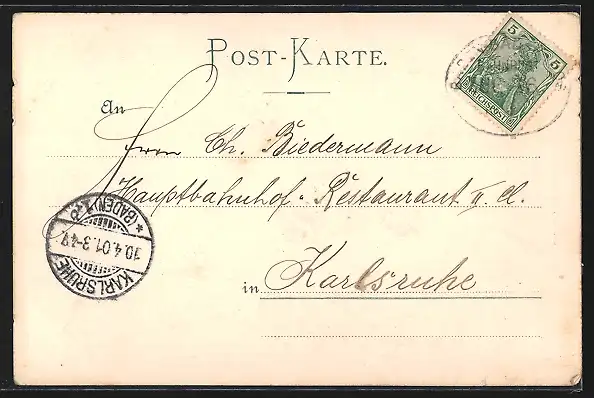 POST-KARTE.
5 5
REICHSPOST
An
Herrn Ch. Biedermann
Hauptbahnhof-Restaurant II. Cl.
in Karlsruhe
KARLSRUHE
10.4.01.3-4
* (BADEN)